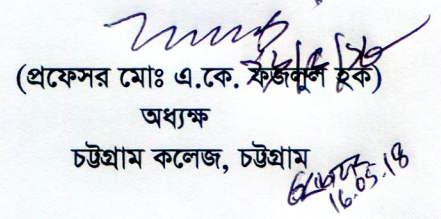 (প্রফেসর মোঃ এ.কে. ফজলুল হক)
অধ্যক্ষ
চট্টগ্রাম কলেজ, চট্টগ্রাম
16.05.18